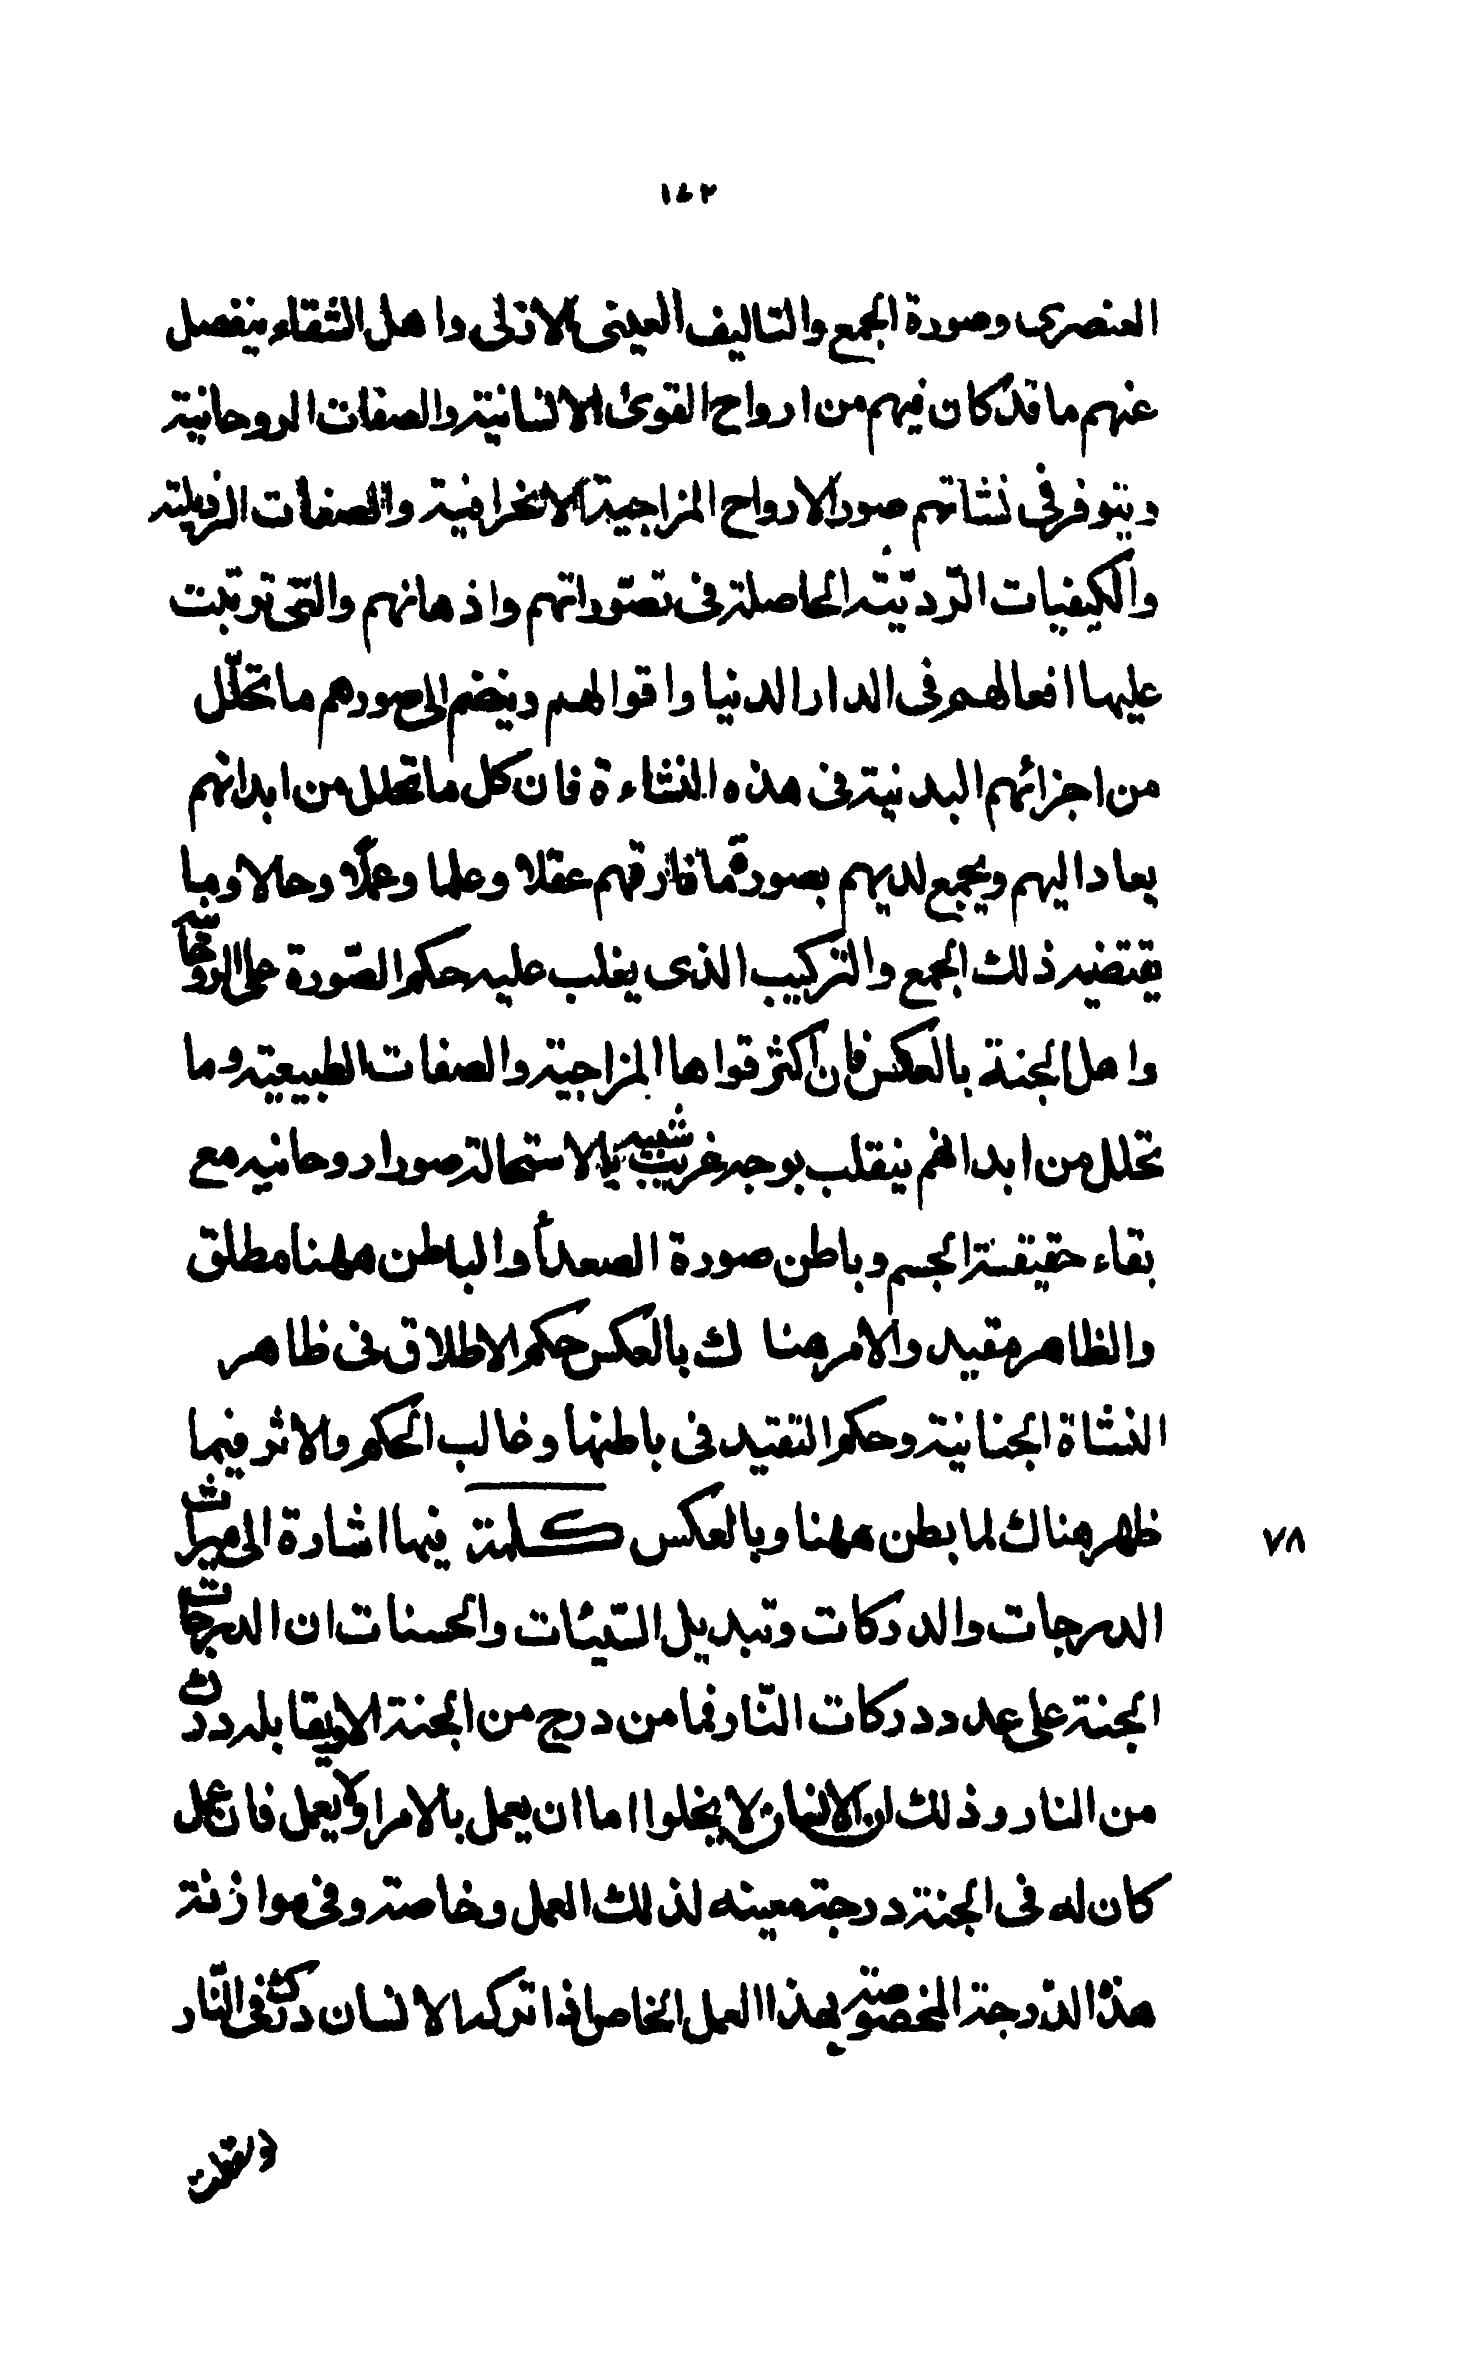 ١٤٢
العنصرى وصورة الجمع والتاليف العينى الازلى واهل الشقاء ينفصل
عنهم ما قد كان فيهم من ارواح القوى الانسانية والصفات الروحانية
ويتوفر فى نشاتهم صور الارواح المزاجية الانحرافية والصفات الرذيلة
والكيفيات الرّديّة الحاصلة فى تصّوراتهم واذهانهم والتى ترتبت
عليها افعالهم فى الدار الدنيا واقوالهم وينضم الى صورهم ما تحلّل
من اجزائهم البدنية فى هذه النشاءة فان كل ما تحلل من ابدانهم
يعاد اليهم ويجمع لديهم بصورة ما فارقهم عقلا وعلما وعملا وحالا وما
يقتضيه ذلك الجمع والتركيب الذى يغلب عليه حكم الصّورة على الروحانية
واهل الجنة بالعكس فان اكثر قواها المزاجية والصفات الطبيعية وما
تحلل من ابدانهم ينقلب بوجه غريب شبيه بالاستحالة صورا روحانيه مع
بقاء حقيقة الجسم وباطن صورة الصعدأ والباطن ههنا مطلق
والظاهر مقيد والامر هنا ك بالعكس حكم الاطلاق فى ظاهر
النشاة الجنانية وحكم التقيد فى باطنها وغالب الحكم والاثر فيما
ظهر هناك لما بطن ههنا وبالعكس كلمة فيها اشارة الى ميراث
٧٨
الدرجات والدركات وتبديل السّيئات والحسنات ان الدرجات
الجنة على عدد دركات النّار فما من درج من الجنة الا ويقابله درك
من النار وذلك ان الانسان لا يخلوا اما ان يعمل بالامر اولا يعمل فان عمل
كان له فى الجنة درجة معينه لذلك العمل وخاصة وفى موازنة
هذه الدّرجة المخصوصة بهذا العمل الخاص اذا تركه الانسان درك فى النّار